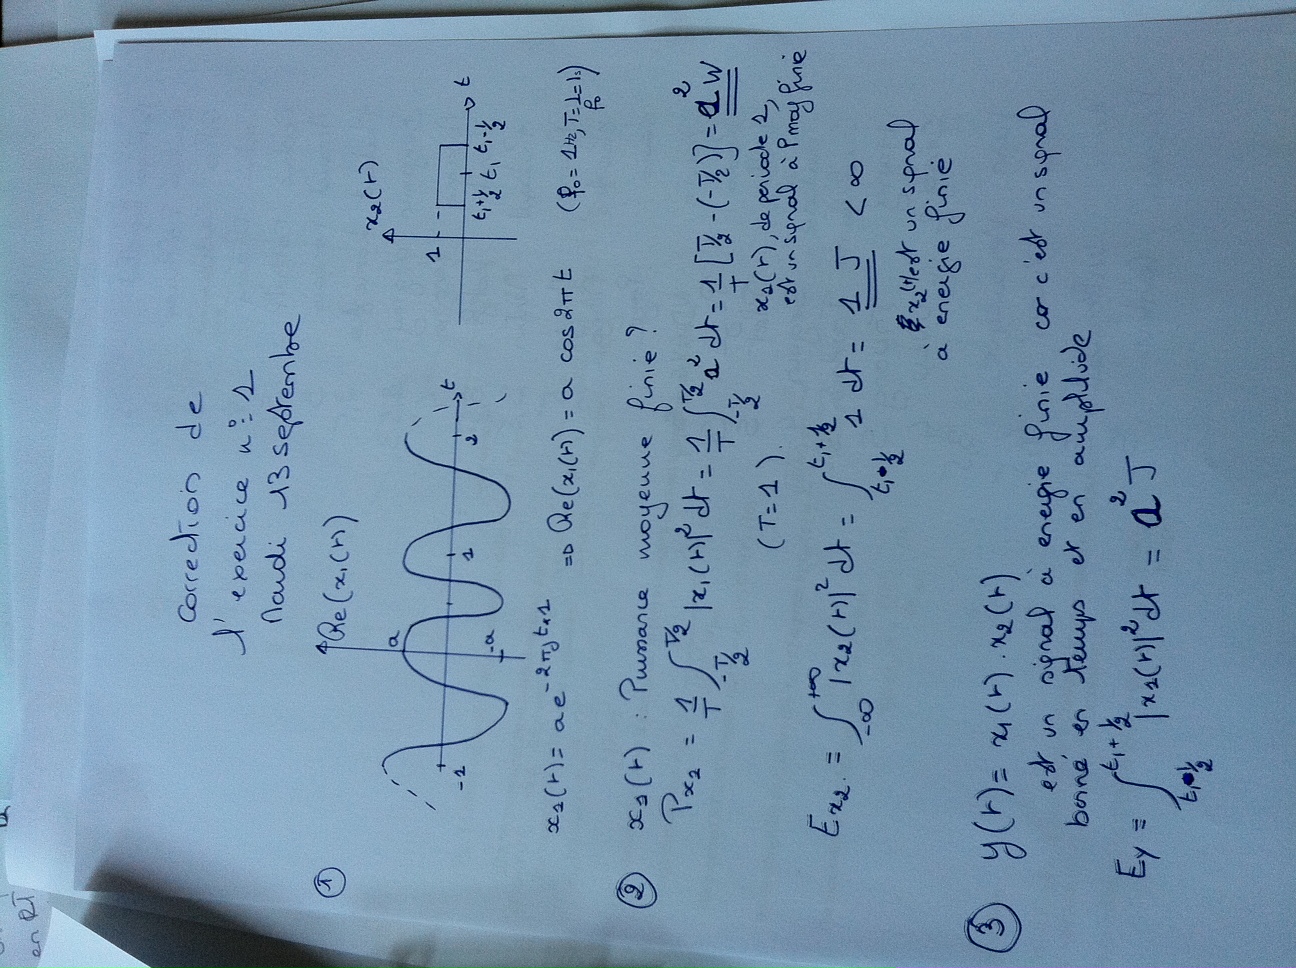 en RT
Correction de
l'exercice n° 1
Mardi 13 septembre
①
Re(x₁(t))
x₂(t)
a
1
-1 1 2 t
-a
t₁+1/2 t₁ t₁-1/2 t
x₁(t) = a e^{-2πjt×1} ⇒ Re(x₁(t)) = a cos 2πt (f₀ = 1Hz, T = 1/f₀ = 1s)
② x₁(t) : Puissance moyenne finie ?
P_{x₂} = 1/T ∫_{-T/2}^{T/2} |x₁(t)|² dt = 1/T ∫_{-T/2}^{T/2} a² dt = 1/T [T/2 - (-T/2)] = a² W
(T=1).
x₁(t), de periode 1,
est un signal à Pmoy finie
E_{x₂} = ∫_{-∞}^{+∞} |x₂(t)|² dt = ∫_{t₁-1/2}^{t₁+1/2} 1 dt = 1 J < ∞
x₂(t) est un signal
à energie finie
③ y(t) = x₁(t) . x₂(t)
est un signal à energie finie car c'est un signal
borné en temps et en amplitude
E_y = ∫_{t₁-1/2}^{t₁+1/2} |x₁(t)|² dt = a² J